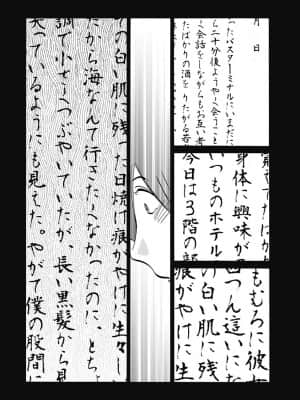 月 日
ったバスターミナルにいまだに
ら二十分後ようやく会うこと
く会話をしながらもお互い考
たばかりの酒を
身体に興味が
いつものホテル
今日は3階の部
もむろに彼
四つん這いに
の白い肌に残
痕がやけに生
その白い肌に残った日焼け痕がやけに生々し
だから海なんて行きたくなかったのに、とち
調で小さくつぶやいていたが、長い黒髪から見
笑っているようにも見えた。やがて僕の股間に